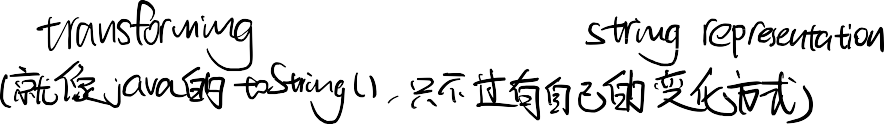 transforming string representation
(就像java的toString(),只不过有自己的变化方式)